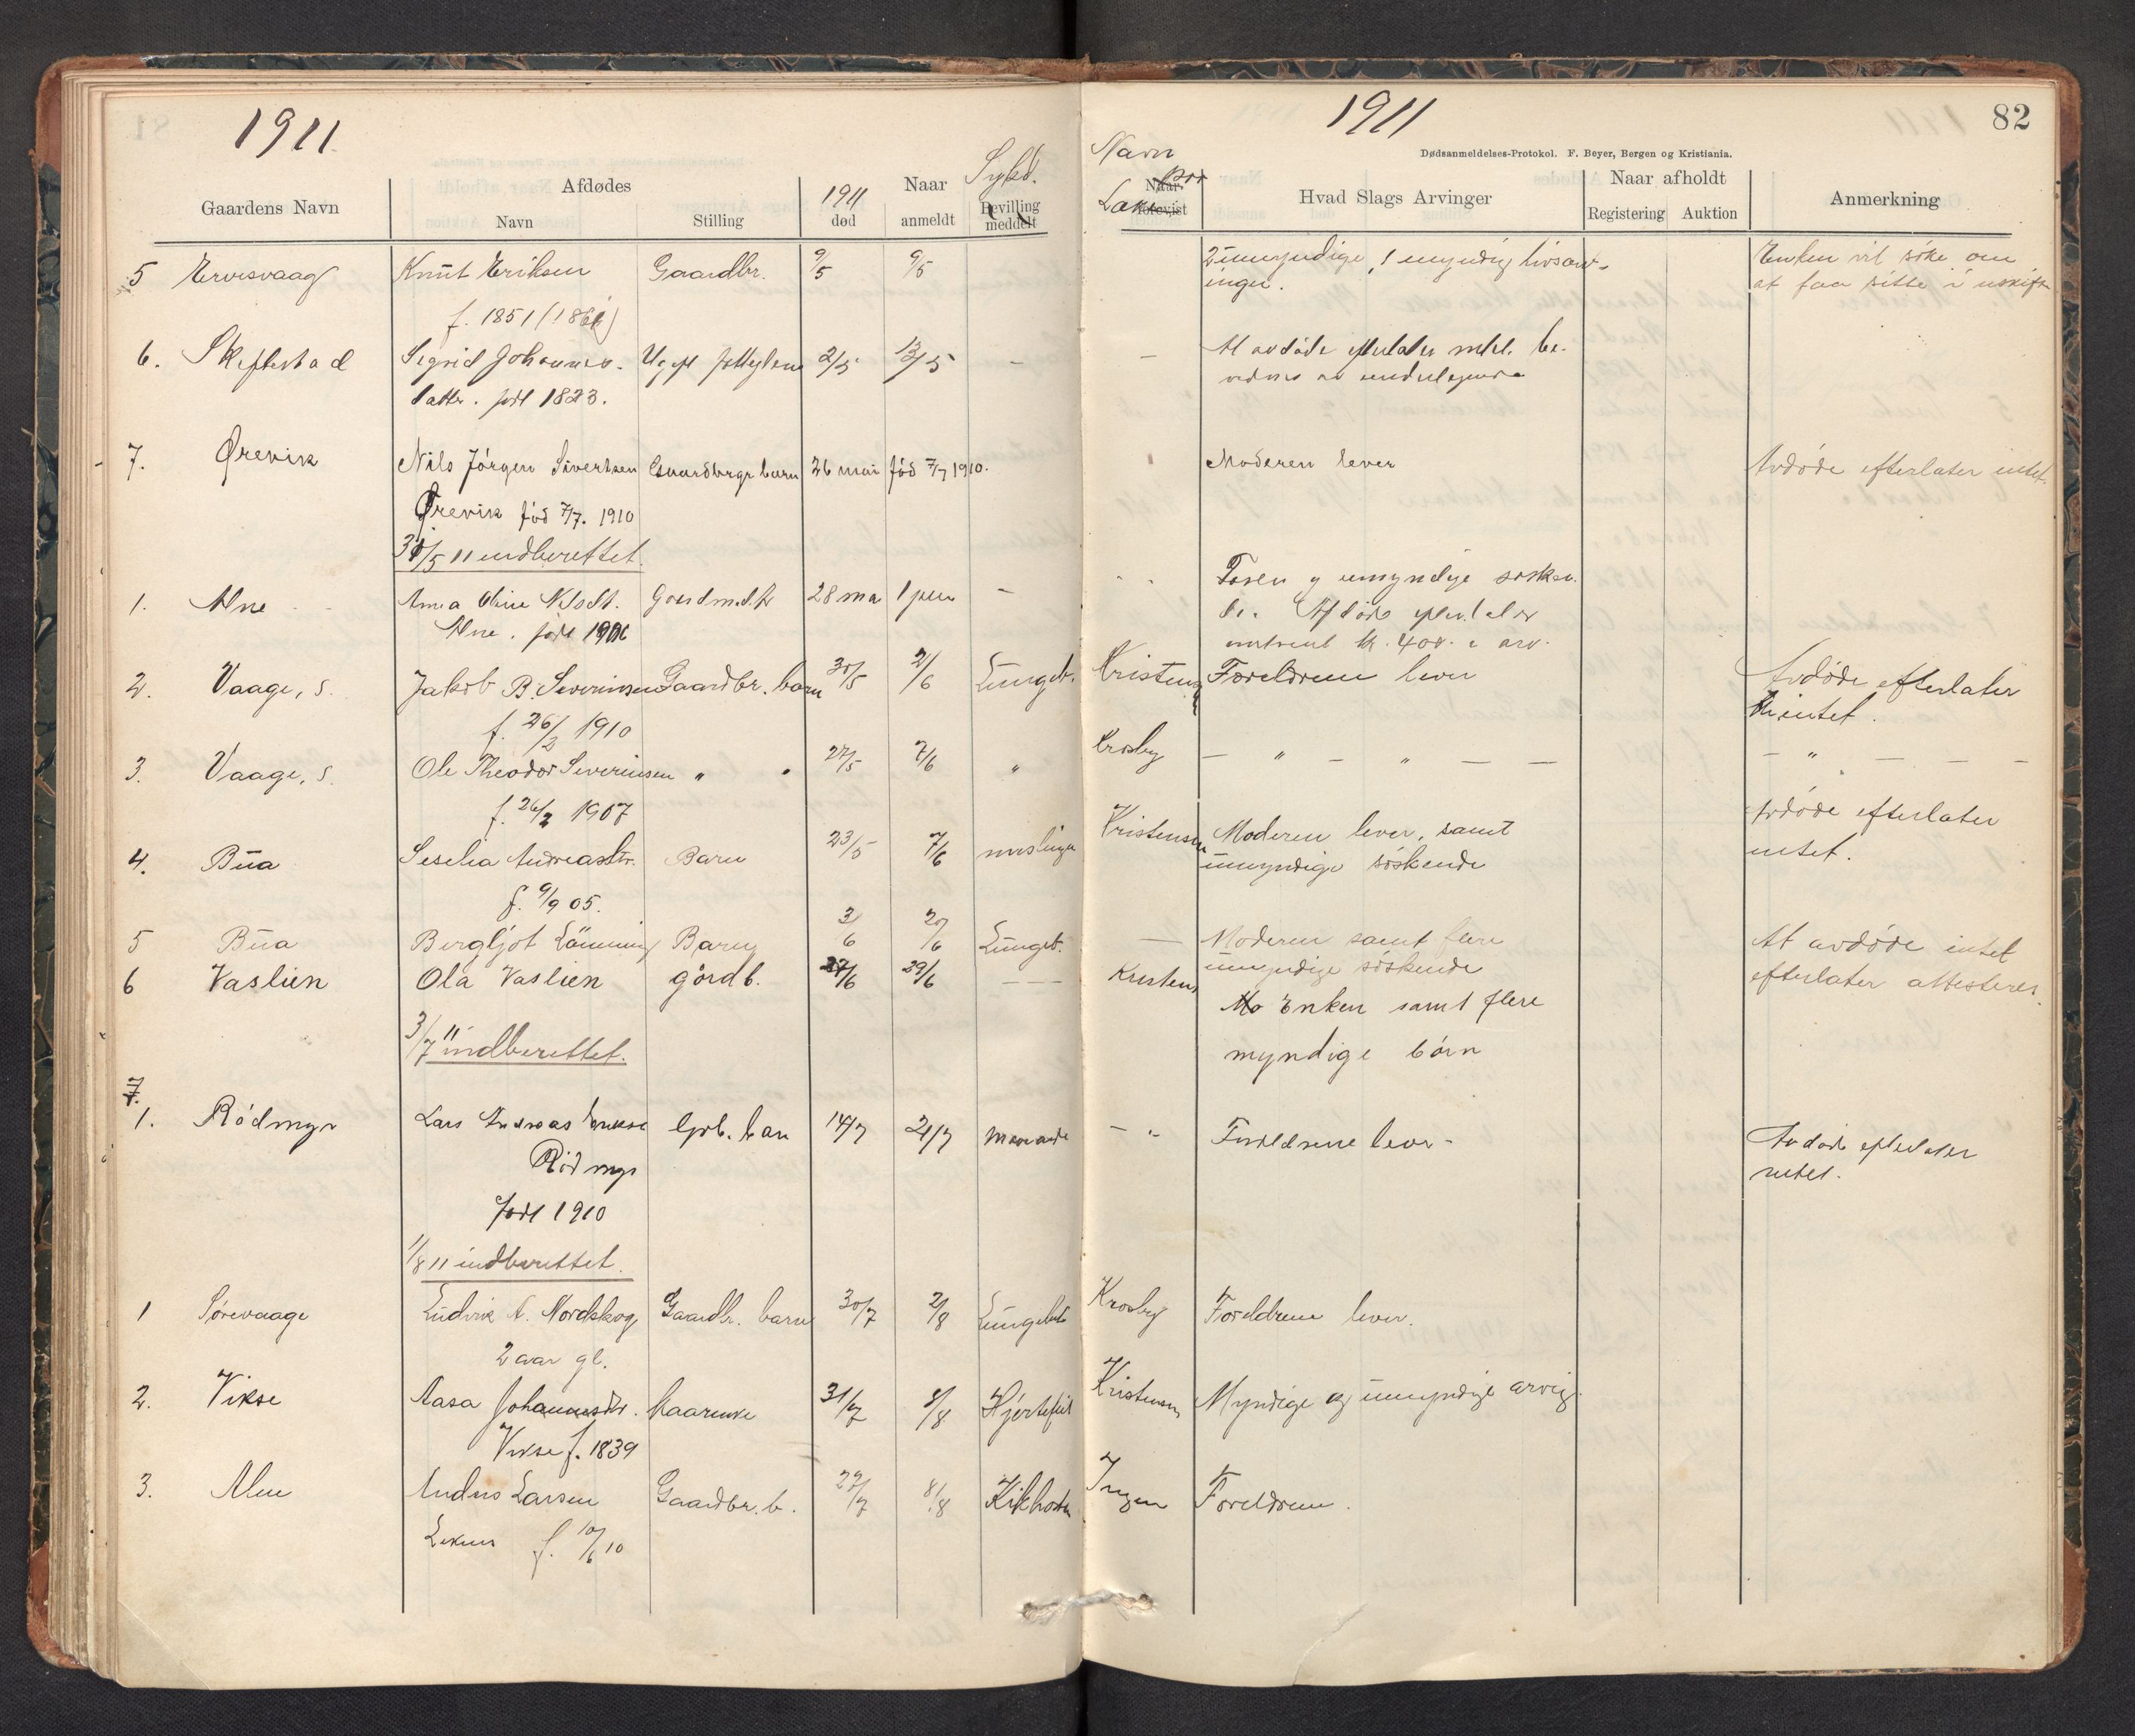 1911
Gaardens Navn
Afdødes
Navn
Stilling
1911
død
Naar
anmeldt
Sykd.
Bevilling
meddelt
5 Ervesvaag Knut Eriksen Gaardbr. 9/5 9/5
f. 1851
6. Skiftestad Sigrid Johannes- Ugift 2/5 13/5 -
datter. født 1823.
7. Ørevik Nils Jörgen Sivertsen Gaardbrgr barn 26 mai föd 7/7 1910.
Ørevik föd 7/7. 1910
/5 11 indberettet.
1. Alne Anna Oline Nilsdt. 28 mai 1 juni -
Alne. født
2. Vaage, s. Jakob B. Severinsen Gaardbr. barn 30/5 2/6 Lungeb.
f. 26/2 1910
3. Vaage, s. Ole Theodor Severinsen " " 27/5 7/6 "
f. 26/2 1907
4. Bua Seselia Andreasdtr. Barn 23/5 7/6 meslinger
f. 9/9 05.
5 Bua Bergljot Lönning Barn 3/6 20/6 Lungeb.
6 Vaslien Ola Vaslien gårdb. 27/6 29/6 ---
3/7 11 indberettet.
7.
1. Rödmyr Lars Andreas Grb. barn 14/7 21/7
Rödmyr
Födt 1910
1/8 11 indberettet.
1 Sørevaage Ludvik A. Nordskog Gaardbr. barn 30/7 2/8 Lungebet
2 aar gl.
2. Vikse Aasa Johannesdtr. Kaarenke 31/7 8/8 Hjertefeil
Vikse f. 1839
3. Alne Andres Larsen Gaardbr. b. 29/7 8/8 Kikhoste
f. 10/6 10
1911
82
Dødsanmeldelses-Protokol. F. Beyer, Bergen og Kristiania.
Navn
paa
Læke
Naar
Hvad Slags Arvinger
Naar afholdt
Registering
Auktion
Anmerkning
2 umyndige, 1 myndig livsarv- Enken vil söke om
inger. at faa sitte i uskifte
- At avdöde efterlater midl. be-
vidnes av undertegnede
Moderen lever Avdöde efterlater intet.
Faren og umyndige sösken-
de. Afdöde efterlater
omtrent kr. 400.- i arv.
Kristensen Foreldrene lever Avdöde efterlater
intet.
Krosby - " - " - - - " - - -
Kristensen Moderen lever, samt Avdöde efterlater
umyndige söskende intet.
- Moderen samt flere At avdöde intet
umyndige söskende efterlater attesteres.
Kristens Enken samt flere
myndige börn
- " Foreldrene lever - Avdöde efterlater
intet.
Krosby Foreldrene lever.
Kristensen Myndige og umyndige arving.
Ingen Foreldrene.